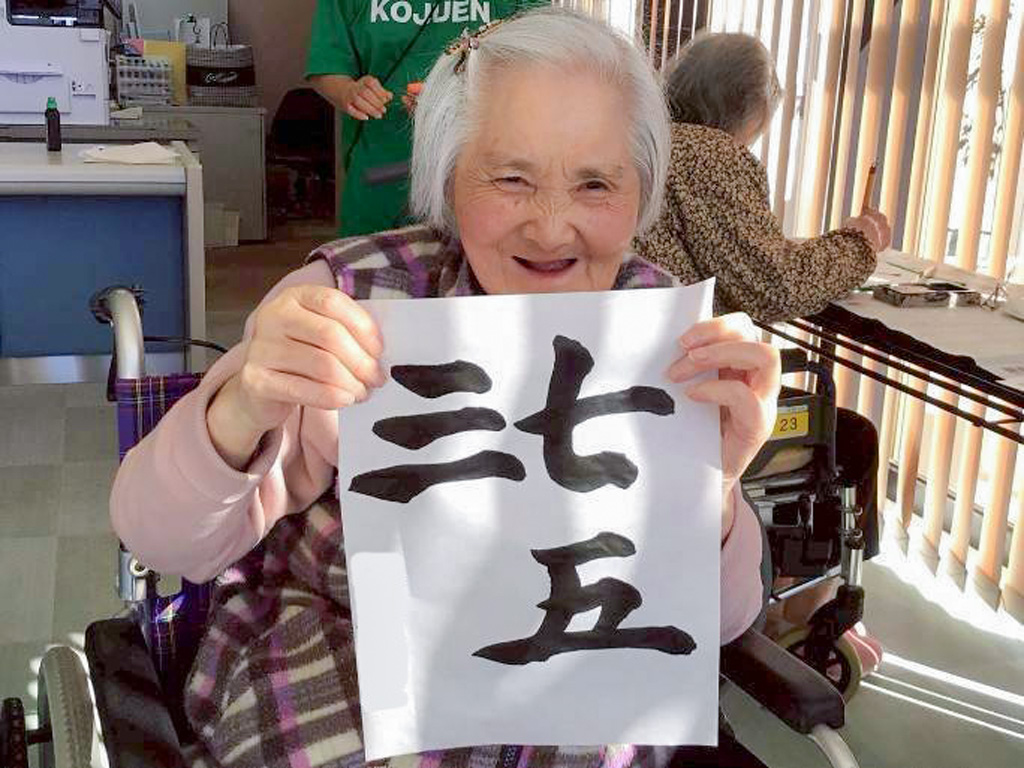 KOJUEN
七五
三
23